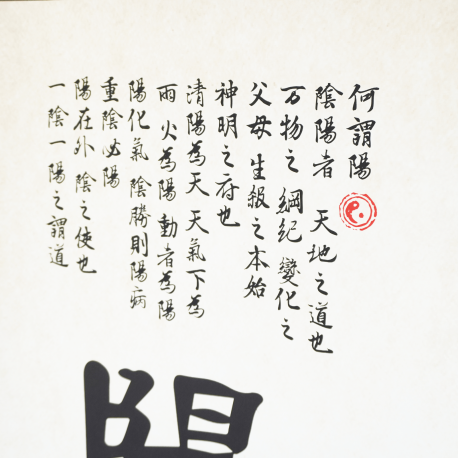 何謂陽
陰陽者 天地之道也
万物之 綱紀 變化之
父母 生殺之本始
神明之府也
清陽為天 天氣下為
雨 火為陽 動者為陽
陽化氣 陰勝則陽病
重陰必陽
陽在外 陰之使也
一陰一陽之謂道
陽